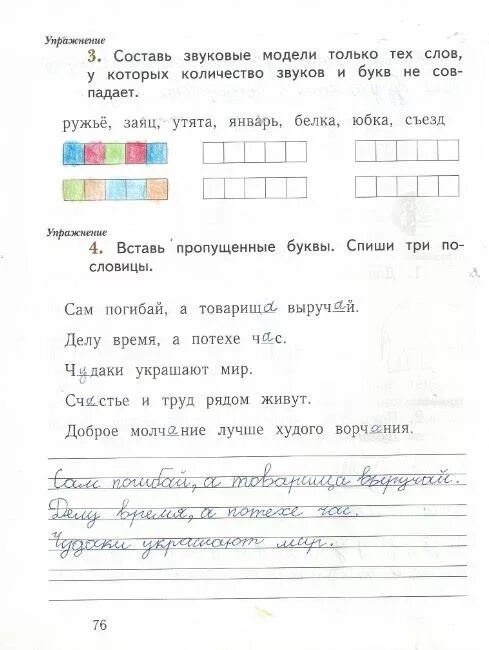 Упражнение
3. Составь звуковые модели только тех слов,
у которых количество звуков и букв не сов-
падает.
ружьё, заяц, утята, январь, белка, юбка, съезд
Упражнение
4. Вставь пропущенные буквы. Спиши три по-
словицы.
Сам погибай, а товарища выручай.
Делу время, а потехе час.
Чудаки украшают мир.
Счастье и труд рядом живут.
Доброе молчание лучше худого ворчания.
Сам погибай, а товарища выручай.
Делу время, а потехе час.
Чудаки украшают мир.
76